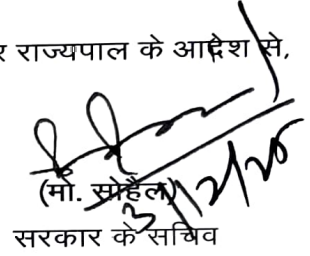 र राज्यपाल के आदेश से,
(मो. सोहैल)
सरकार के सचिव